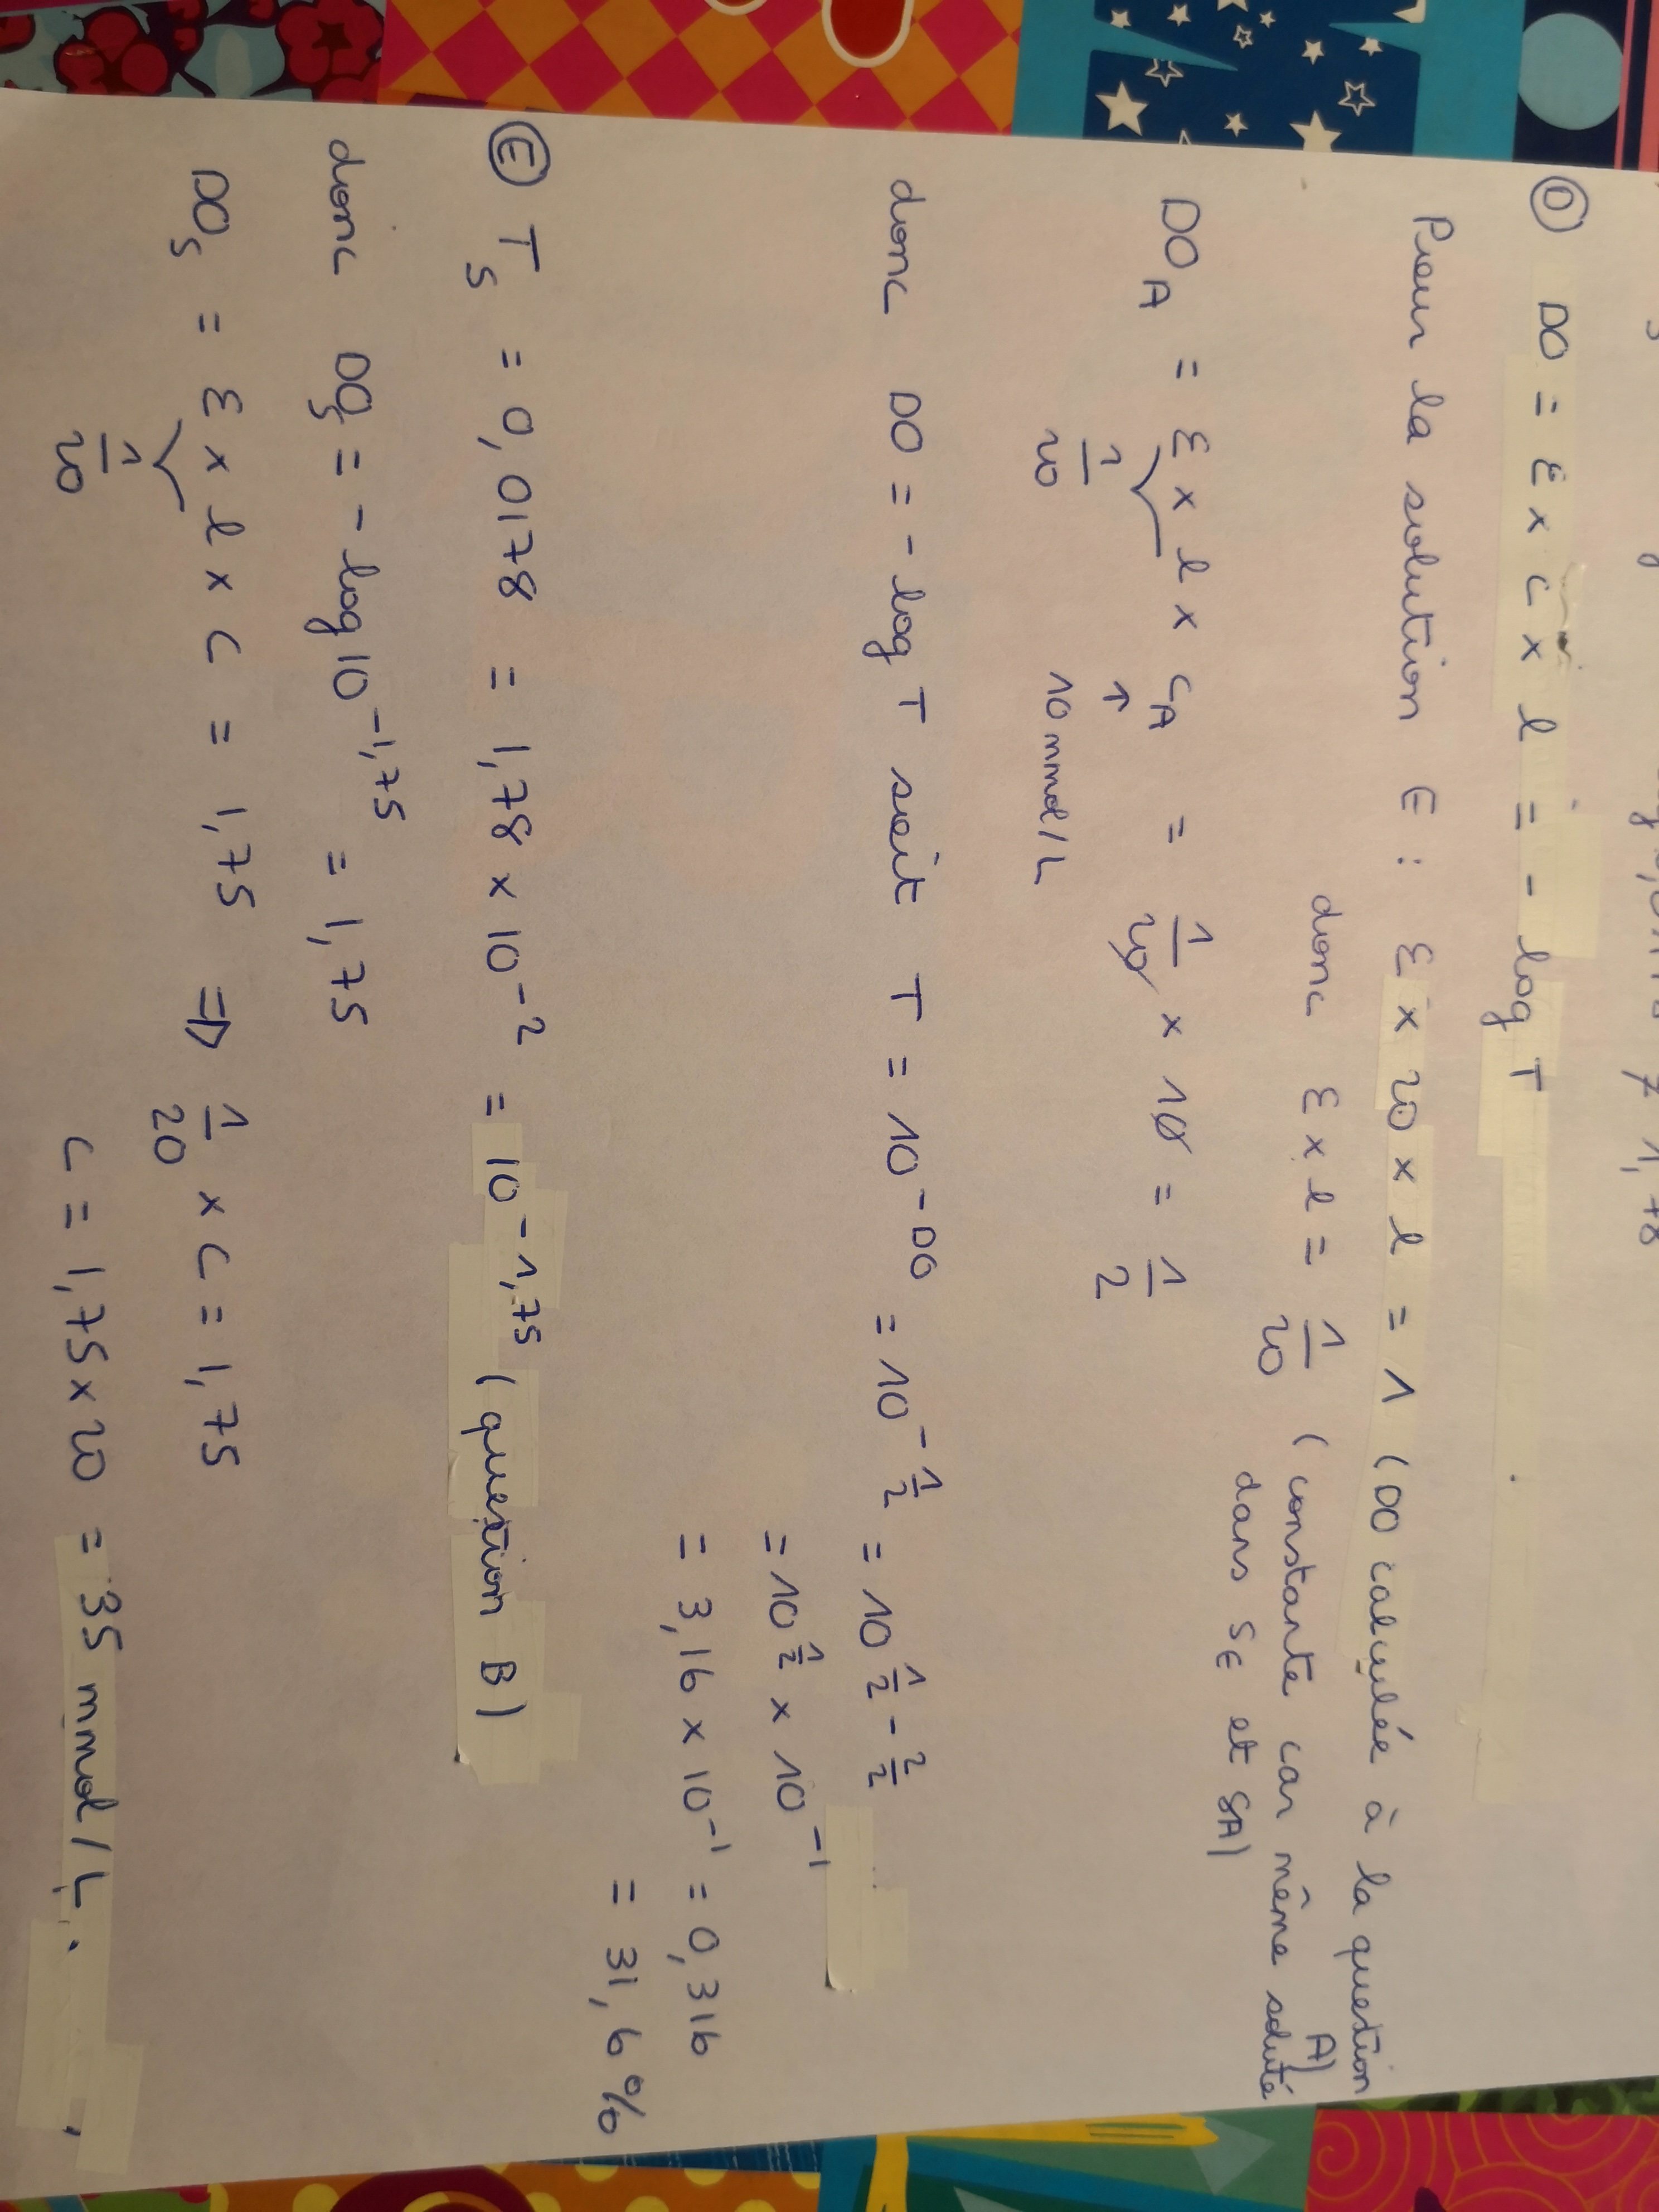 Ⓓ DO = ε x c x l = - log T
Pour la solution E : ε x 20 x l = 1 (DO calculée à la question A)
donc ε x l = 1/20 (constante car même soluté
dans SE et SA)
DO_A = ε x l x c_A = 1/20 x 10 = 1/2
1/20 ↑
10 mmol/L
donc DO = - log T soit T = 10^-DO = 10^-1/2 = 10^1/2 - 2/2
= 10^1/2 x 10^-1
= 3,16 x 10^-1 = 0,316
= 31,6 %
Ⓔ T_S = 0,0178 = 1,78 x 10^-2 = 10^-1,75 (question B)
donc DO_S = - log 10^-1,75 = 1,75
DO_S = ε x l x C = 1,75 => 1/20 x C = 1,75
1/20
C = 1,75 x 20 = 35 mmol/L.